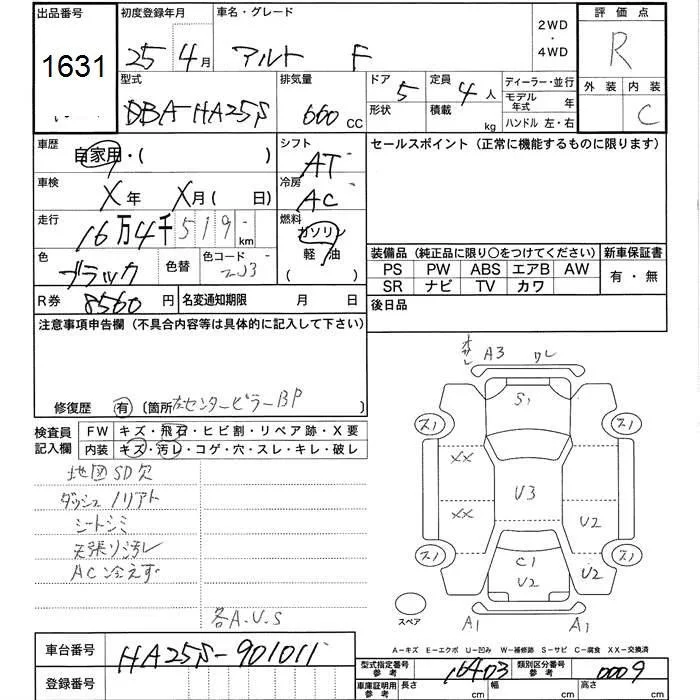 出品番号 初度登録年月 車名・グレード 2WD・4WD 評価点
1631 25年 4月 アルト F R
型式 排気量 ドア 5 定員 4人 ディーラー・並行 外装 内装
DBA-HA25S 660cc 形状 積載 kg モデル年式 年 C
ハンドル 左・右
車歴 自家用・( ) シフト AT セールスポイント(正常に機能するものに限ります)
車検 X年 X月( 日) 冷房 AC
走行 16万4千519km 燃料 ガソリン
色 ブラック 色替 色コード ZJ3 軽油 ( )
装備品(純正品に限り○をつけてください) 新車保証書
PS PW ABS エアB AW 有・無
SR ナビ TV カワ
R券 8560円 名変通知期限 月 日 後日品
注意事項申告欄(不具合内容等は具体的に記入して下さい)
修復歴 有 [箇所 左センターピラーBP ]
検査員記入欄 FW キズ・飛石・ヒビ割・リペア跡・X要
内装 キズ・汚レ・コゲ・穴・スレ・キレ・破レ
地図SD欠
ダッシュノリアト
シートシミ
天張り汚レ
AC冷えず
各A.U.S
A3 ワレ
S1
スノ スノ
XX
U3
XX U2
スノ スノ
C1
U2 U2
スペア A1 A1
A-キズ E-エクボ U-凹み W-補修跡 S-サビ C-腐食 XX-交換済
車台番号 HA25S-901011
登録番号
型式指定番号参考 16403 類別区分番号参考 0009
車庫証明用参考 長さ cm 幅 cm 高さ cm